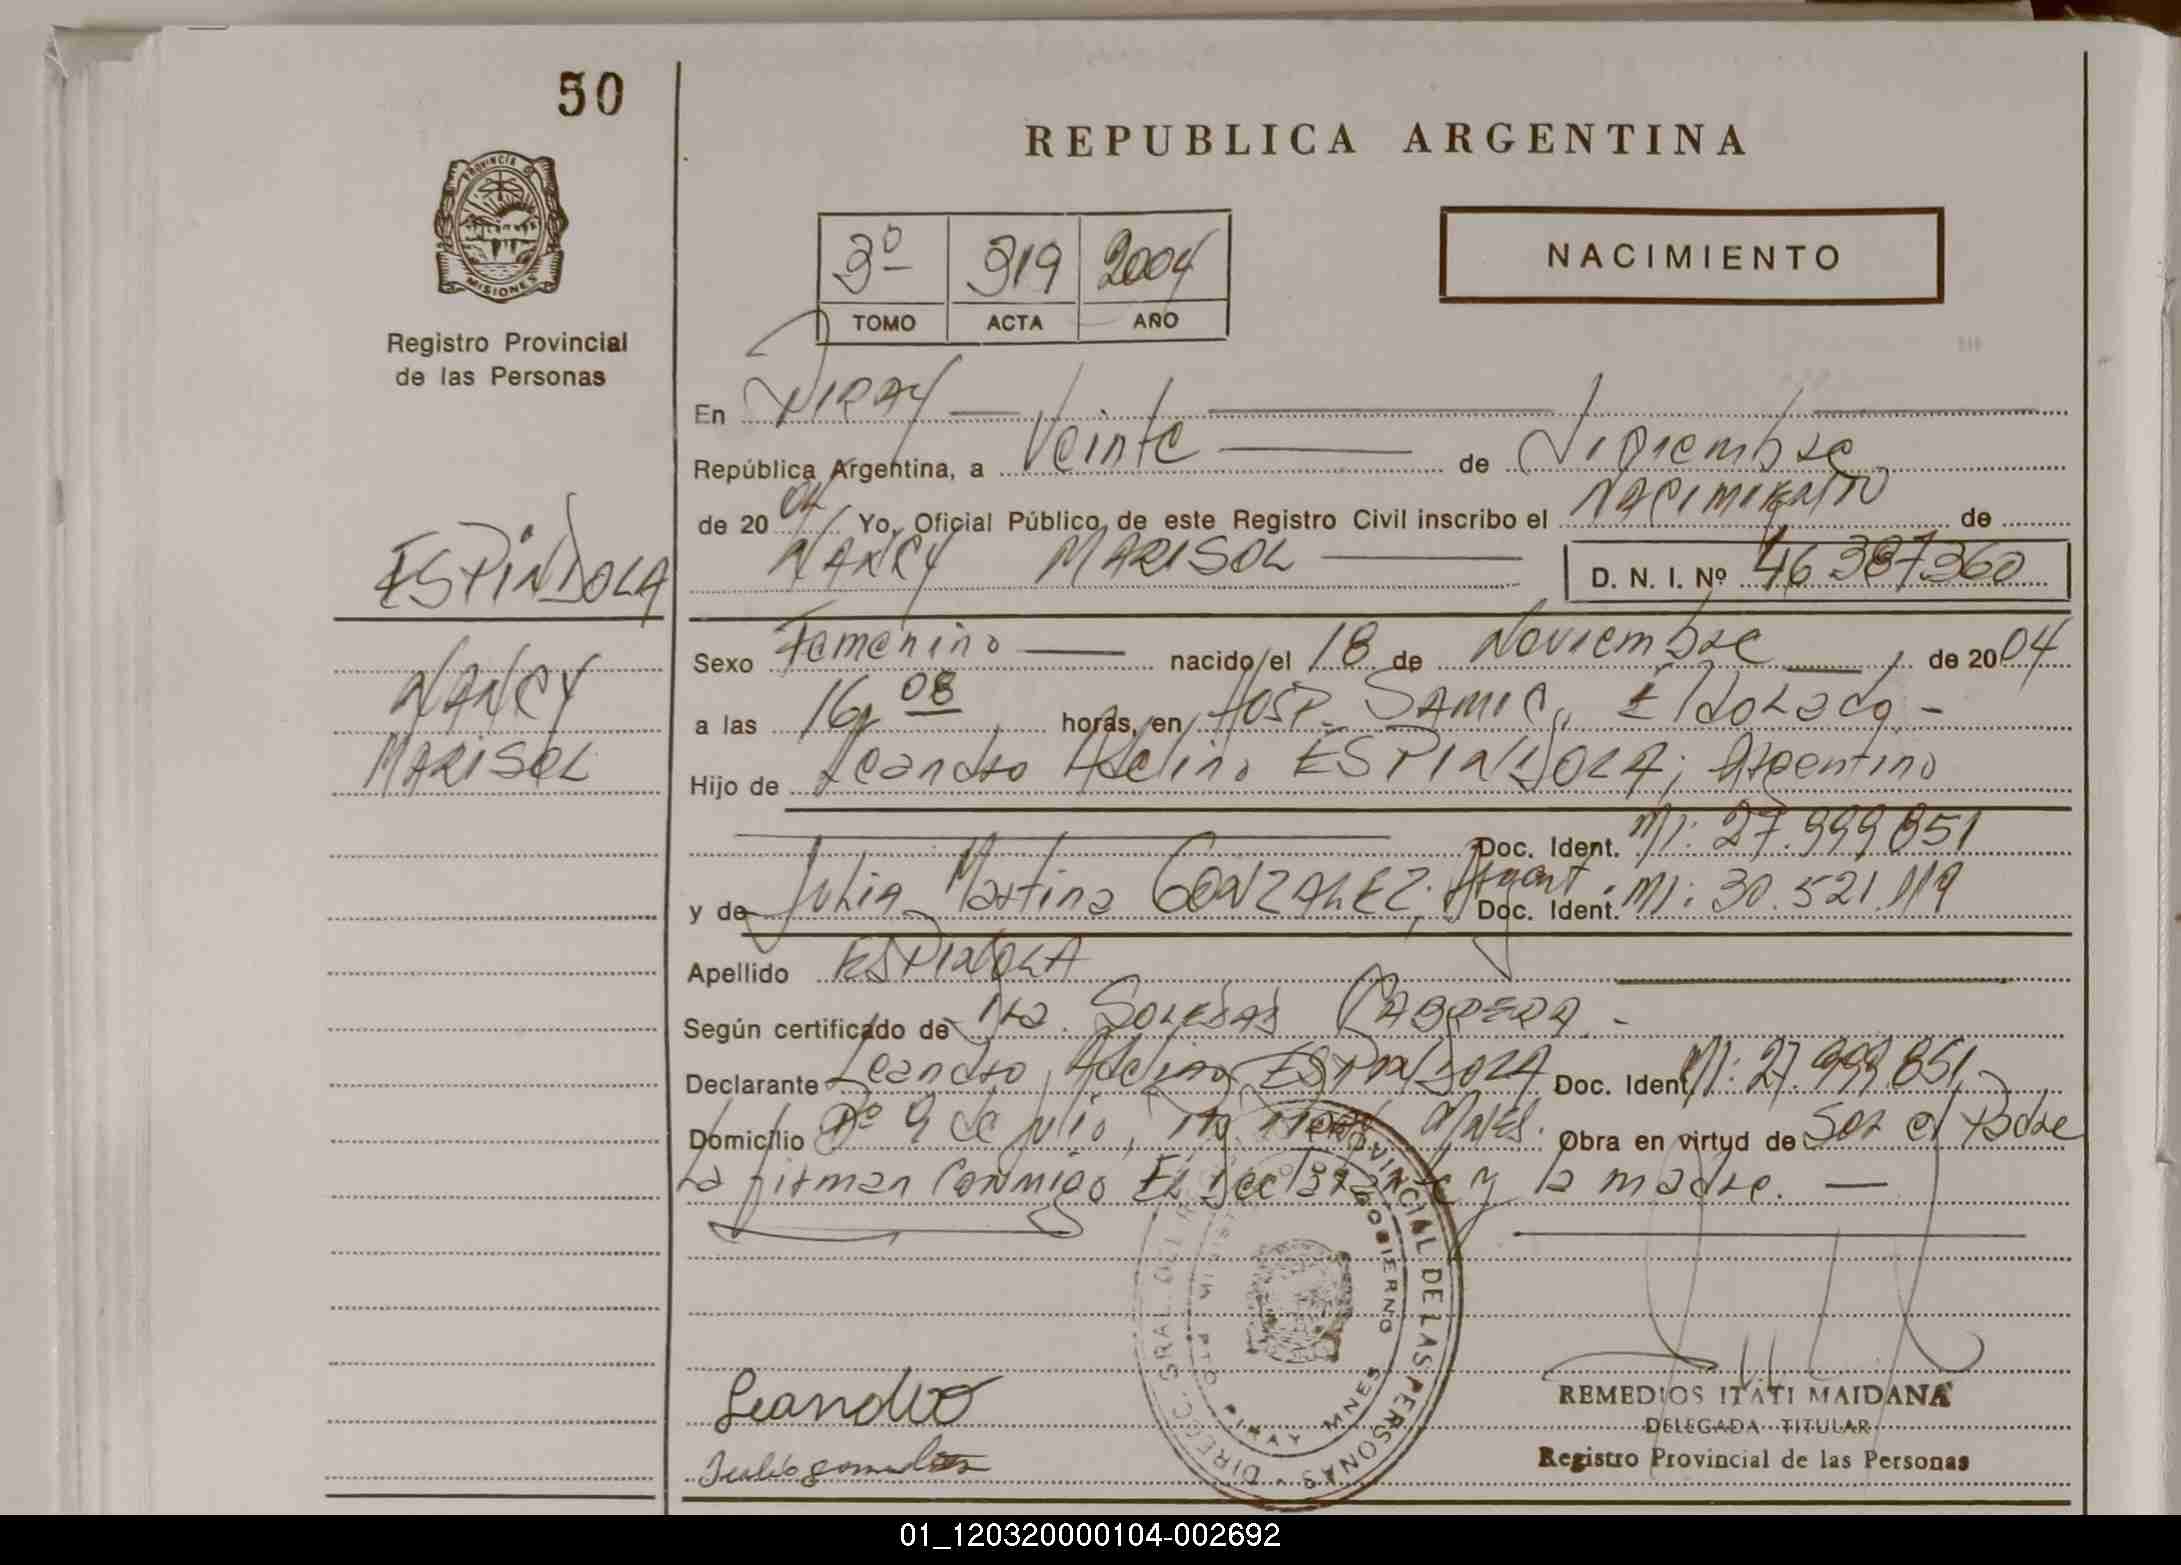 50
REPUBLICA ARGENTINA
PROVINCIA DE
MISIONES
Registro Provincial
de las Personas
3º 319 2004
TOMO ACTA AÑO
NACIMIENTO
En PIRAY
República Argentina, a Veinte de Diciembre
de 2004 Yo, Oficial Público de este Registro Civil inscribo el NACIMIENTO de
NANCY MARISOL D. N. I. Nº 46387360
ESPINDOLA
NANCY
MARISOL
Sexo Femenino nacido el 18 de Noviembre de 2004
a las 16 08 horas, en Hosp. SAMIC, Eldorado -
Hijo de Leandro Adelino ESPINDOLA; Argentino
Doc. Ident. MI: 27.999851
y de Julia Martina GONZALEZ; Argent. Doc. Ident. MI: 30.521.119
Apellido ESPINDOLA
Según certificado de Dra. SOLEDAD CABRERA.-
Declarante Leandro Adelino ESPINDOLA Doc. Ident. MI: 27.999.851
Domicilio Bº 9 de Julio, Piray Mnes. Obra en virtud de Ser el Padre
La firman Conmigo El Declarante y la madre.
DIRECC. GRAL. DEL PROVINCIAL DE LAS PERSONAS
GOBIERNO
PTO PIRAY MNES
Leandro
REMEDIOS ITATI MAIDANA
DELEGADA TITULAR
Registro Provincial de las Personas
01_120320000104-002692